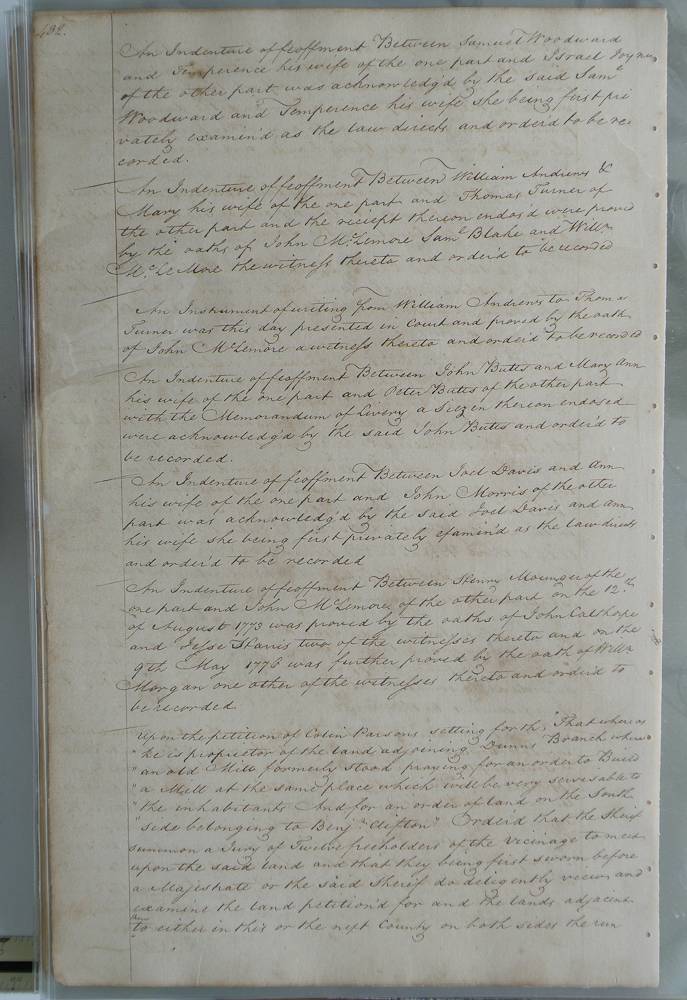 492.
An Indenture of feoffment Between Samuel Woodward
and Temperence his wife of the one part and Israel Joyner
of the other part was acknowledg'd by the said Saml
Woodward and Temperence his wife she being first pri
vately examin'd as the law directs and order'd to be re
corded.
An Indenture of feoffment Between William Andrews &
Mary his wife of the one part and Thomas Turner of
the other part and the reciept thereon endos'd were proved
by the oaths of John McLemore Saml Blake and Willm
McLeMore the witness thereto and order'd to be recorded
An Instrument of writing from William Andrews to Thomas
Turner was this day presented in Court and proved by the oath
of John McLemore a witness thereto and order'd to be recorded
An Indenture of feoffment Between John Butts and Mary Ann
his wife of the one part and Peter Butts of the other part
with the Memorandum of Livery a Seizen thereon endosed
were acknowledg'd by the said John Butts and order'd to
be recorded.
An Indenture of feoffment Between Joel Davis and Ann
his wife of the one part and John Morris of the other
part was acknowledg'd by the said Joel Davis and Ann
his wife she being first privately examin'd as the law directs
and order'd to be recorded
An Indenture of feoffment Between Henry Mounger of the
one part and John McLemore of the other part on the 12th
of August 1773 was proved by the oaths of John Calthope
and Jesse Harris two of the witnesses thereto and on the
9th May 1776 was further proved by the oath of Willm
Morgan one other of the witnesses thereto and order'd to
be recorded
Upon the petition of Colin Parsons setting forth, "That whereas
" he is proprietor of the land adjoining Dunns Branch where
" an old Mill formerly stood praying for an order to Build
" a Mill at the same place which will be very servisable to
" the inhabitants And for an order of land on the South
" side belonging to Benj: Clifton" Order'd that the Sherif
summon a Jury of Twelve freeholders of the vicinage to meet
upon the said land and that they being first sworn before
a Majestrate or the said Sherif do deligently veiew and
examine the land petition'd for and the lands adjacent
thereto either in this or the next County on both sides the run